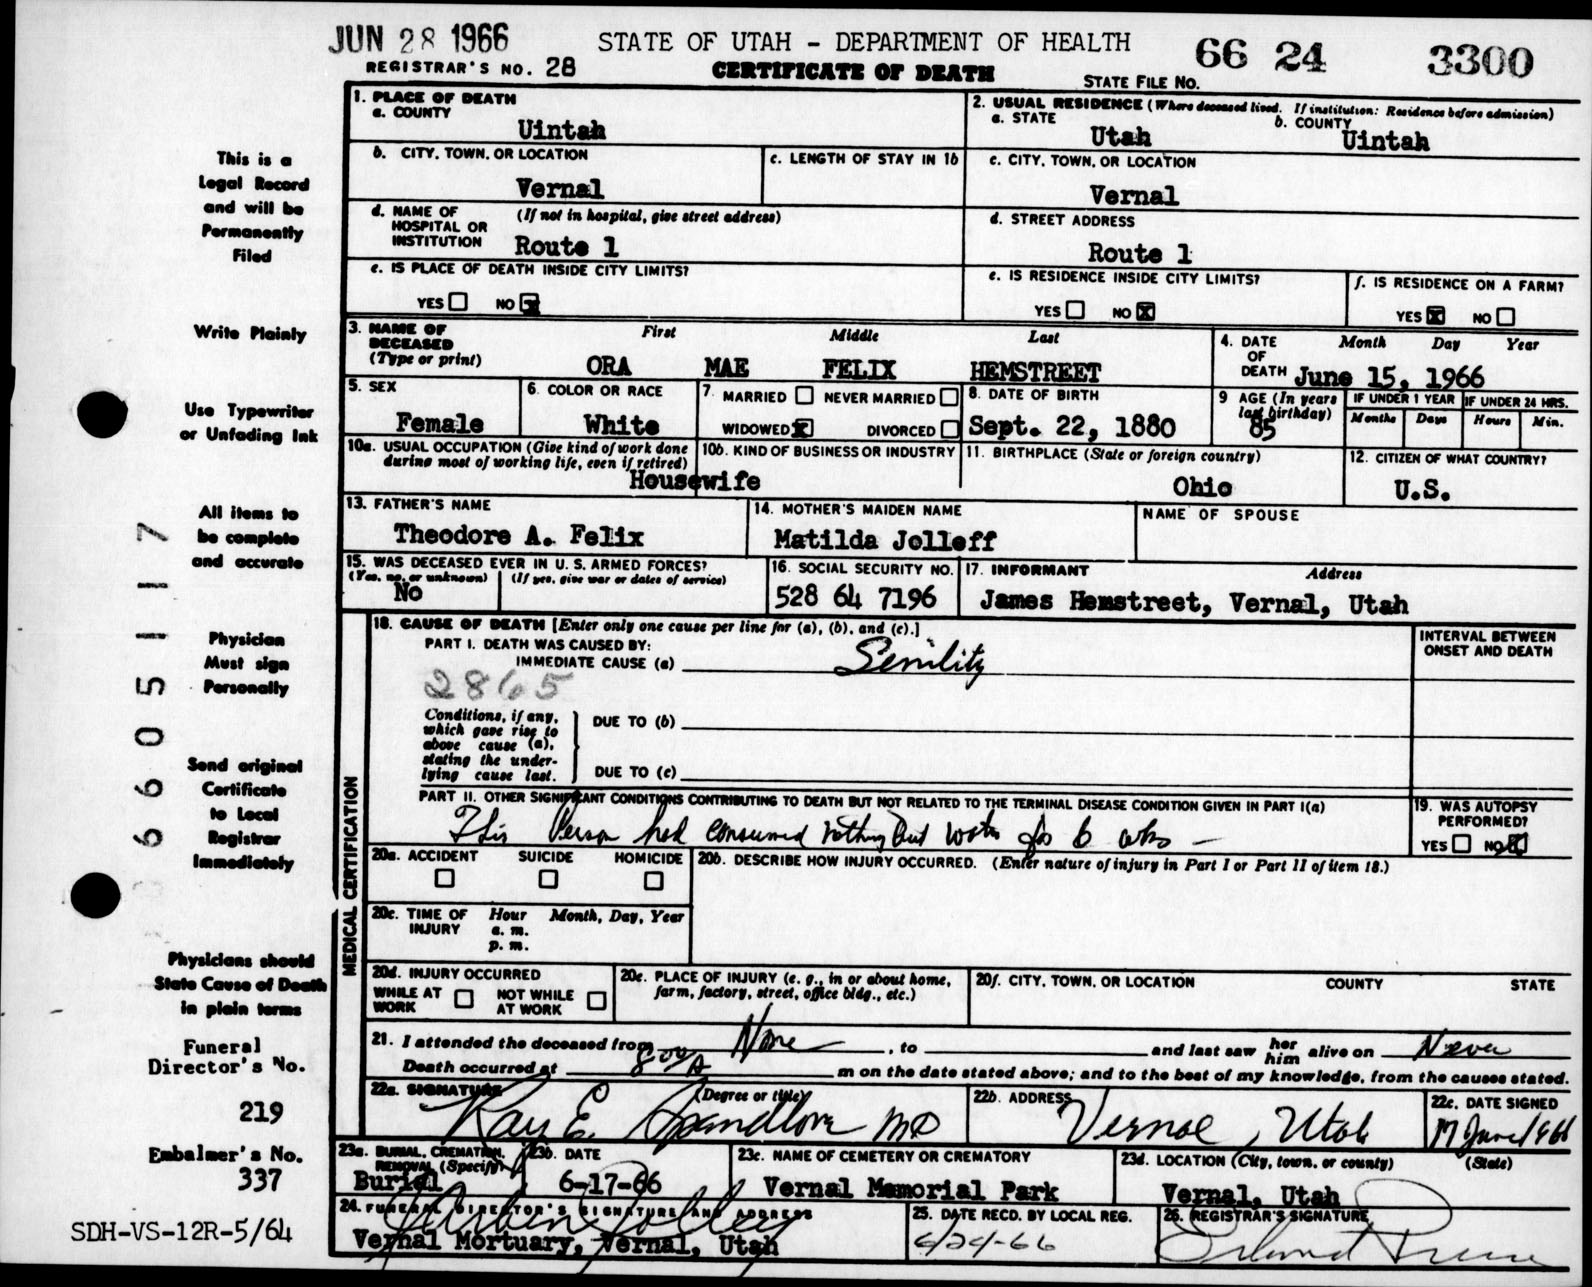 JUN 28 1966
STATE OF UTAH - DEPARTMENT OF HEALTH
66 24 3300
REGISTRAR'S NO. 28
CERTIFICATE OF DEATH
STATE FILE NO.
This is a
Legal Record
and will be
Permanently
Filed
Write Plainly
Use Typewriter
or Unfading Ink
All items to
be complete
and accurate
Physician
Must sign
Personally
Send original
Certificate
to Local
Registrar
Immediately
Physicians should
State Cause of Death
in plain terms
Funeral
Director's No.
219
Embalmer's No.
337
SDH-VS-12R-5/64
6605117
1. PLACE OF DEATH
a. COUNTY
Uintah
2. USUAL RESIDENCE (Where deceased lived. If institution: Residence before admission)
a. STATE
Utah
b. COUNTY
Uintah
b. CITY, TOWN, OR LOCATION
Vernal
c. LENGTH OF STAY IN 1b
c. CITY, TOWN, OR LOCATION
Vernal
d. NAME OF HOSPITAL OR INSTITUTION
(If not in hospital, give street address)
Route 1
d. STREET ADDRESS
Route 1
e. IS PLACE OF DEATH INSIDE CITY LIMITS?
YES NO X
e. IS RESIDENCE INSIDE CITY LIMITS?
YES NO X
f. IS RESIDENCE ON A FARM?
YES X NO
3. NAME OF DECEASED
(Type or print)
First Middle Last
ORA MAE FELIX HEMSTREET
4. DATE OF DEATH
Month Day Year
June 15, 1966
5. SEX
Female
6. COLOR OR RACE
White
7. MARRIED NEVER MARRIED
WIDOWED X DIVORCED
8. DATE OF BIRTH
Sept. 22, 1880
9 AGE (In years last birthday)
85
IF UNDER 1 YEAR
Months Days
IF UNDER 24 HRS.
Hours Min.
10a. USUAL OCCUPATION (Give kind of work done
during most of working life, even if retired)
Housewife
10b. KIND OF BUSINESS OR INDUSTRY
11. BIRTHPLACE (State or foreign country)
Ohio
12. CITIZEN OF WHAT COUNTRY?
U.S.
13. FATHER'S NAME
Theodore A. Felix
14. MOTHER'S MAIDEN NAME
Matilda Jolleff
NAME OF SPOUSE
15. WAS DECEASED EVER IN U. S. ARMED FORCES?
(Yes, no, or unknown) (If yes, give war or dates of service)
No
16. SOCIAL SECURITY NO.
528 64 7196
17. INFORMANT Address
James Hemstreet, Vernal, Utah
MEDICAL CERTIFICATION
18. CAUSE OF DEATH [Enter only one cause per line for (a), (b), and (c).]
INTERVAL BETWEEN
ONSET AND DEATH
PART I. DEATH WAS CAUSED BY:
IMMEDIATE CAUSE (a) Senility
2865
Conditions, if any,
which gave rise to
above cause (a),
stating the under-
lying cause last.
DUE TO (b)
DUE TO (c)
PART II. OTHER SIGNIFICANT CONDITIONS CONTRIBUTING TO DEATH BUT NOT RELATED TO THE TERMINAL DISEASE CONDITION GIVEN IN PART I(a)
This Person had consumed nothing but water for 6 wks -
19. WAS AUTOPSY
PERFORMED?
YES NO X
20a. ACCIDENT SUICIDE HOMICIDE
20b. DESCRIBE HOW INJURY OCCURRED. (Enter nature of injury in Part I or Part II of item 18.)
20c. TIME OF INJURY
Hour Month, Day, Year
a. m.
p. m.
20d. INJURY OCCURRED
WHILE AT WORK NOT WHILE AT WORK
20e. PLACE OF INJURY (e. g., in or about home,
farm, factory, street, office bldg., etc.)
20f. CITY, TOWN, OR LOCATION COUNTY STATE
21. I attended the deceased from None, to and last saw her him alive on Never
Death occurred at 8:00 A m on the date stated above; and to the best of my knowledge, from the causes stated.
22a. SIGNATURE (Degree or title)
Ray E. Spendlove MD
22b. ADDRESS
Vernal, Utah
22c. DATE SIGNED
17 June 1966
23a. BURIAL, CREMATION,
REMOVAL (Specify)
Burial
23b. DATE
6-17-66
23c. NAME OF CEMETERY OR CREMATORY
Vernal Memorial Park
23d. LOCATION (City, town, or county) (State)
Vernal, Utah
24. FUNERAL DIRECTOR'S SIGNATURE AND ADDRESS
Vernal Mortuary, Vernal, Utah
25. DATE RECD. BY LOCAL REG.
6/24-66
26. REGISTRAR'S SIGNATURE